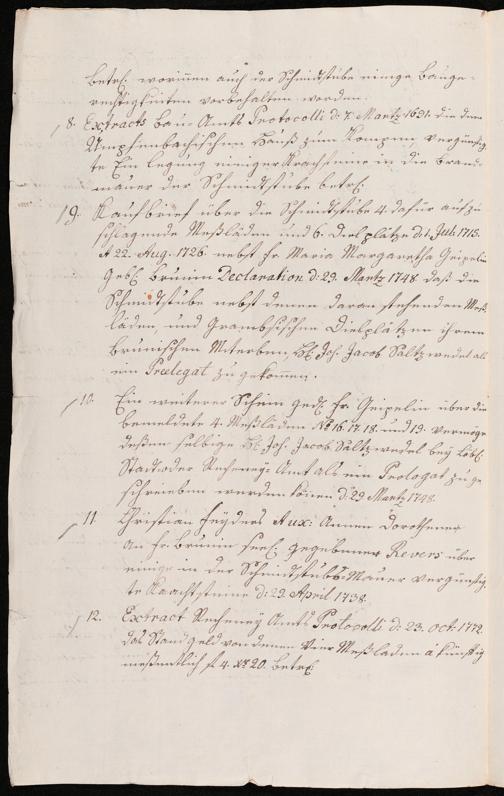 betrf. worinnen auch der Schmidtstube einige Bauge-
rechtigkeiten vorbehalten worden.
8. Extracts Bau-Amts Protocolli d: 7. Martz 1691. die dem
Haus zum vergünstig-
te Einlegung einiger Kragsteine in die Brand-
mauer der Schmidtstube betrf.
9. Kaufbrief über die Schmidtstube 4. dafür aufzu-
schlagende Meßläden und 6. Dielplätze d: 1. Jul. 1715.
& 22. Aug. 1726. nebst Fr. Maria Margaretha Geipelin
geb. Brunin Declaration d: 29. Martz 1748 daß die
Schmidtstube nebst denen daran stehenden Meß-
läden, und Grambsischen Dielplätzen ihrem
Brunischen Miterben, H. Joh. Jacob Saltzwedel als
ein Prælegat zugekommen.
10. Ein weiterer Schein ged. Fr. Geipelin über die
bemeldete 4. Meßläden No 16. 17. 18. und 19. vermöge
dessen selbige H. Joh. Jacob Saltzwedel bey löbl.
Stadt oder Recheney-Amt als ein Prologat zuge-
schrieben werden können d: 29 Martz 1748.
11. Christian Feyders Aux: Annen Dorotheener
an Fr. Brunin seel. gegebener Revers über
einige in der Schmidtstubs-Mauer vergünstig-
te Kragsteine d: 22. April 1738.
12. Extract Recheney Amts Protocolli d: 23. Oct. 1772.
das Standgeld von denen Vier Meßläden à künftig
meßentlich fl. 4. Xr 20. betrf.